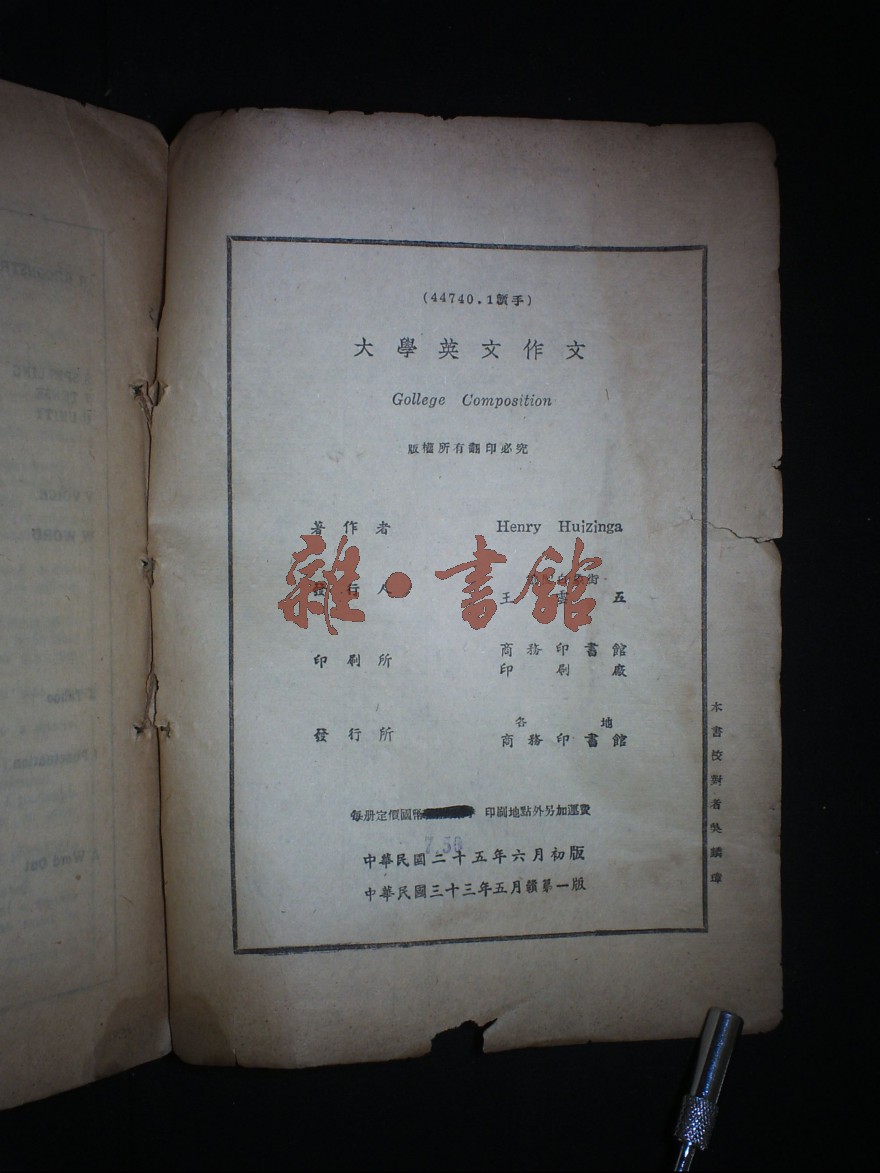 (44740.1贛手)
大學英文作文
Gollege Composition
版權所有翻印必究
著作者 Henry Huizinga
發行人 王雲五
印刷所 商務印書館
印刷廠
發行所 各地
商務印書館
每册定價國幣 印刷地點外另加運費
7.50
中華民國二十五年六月初版
中華民國三十三年五月贛第一版
本書校對者吳麟瑋
雜·書館
SPELLING
TENSE
UNITY
V VOICE
W WORD